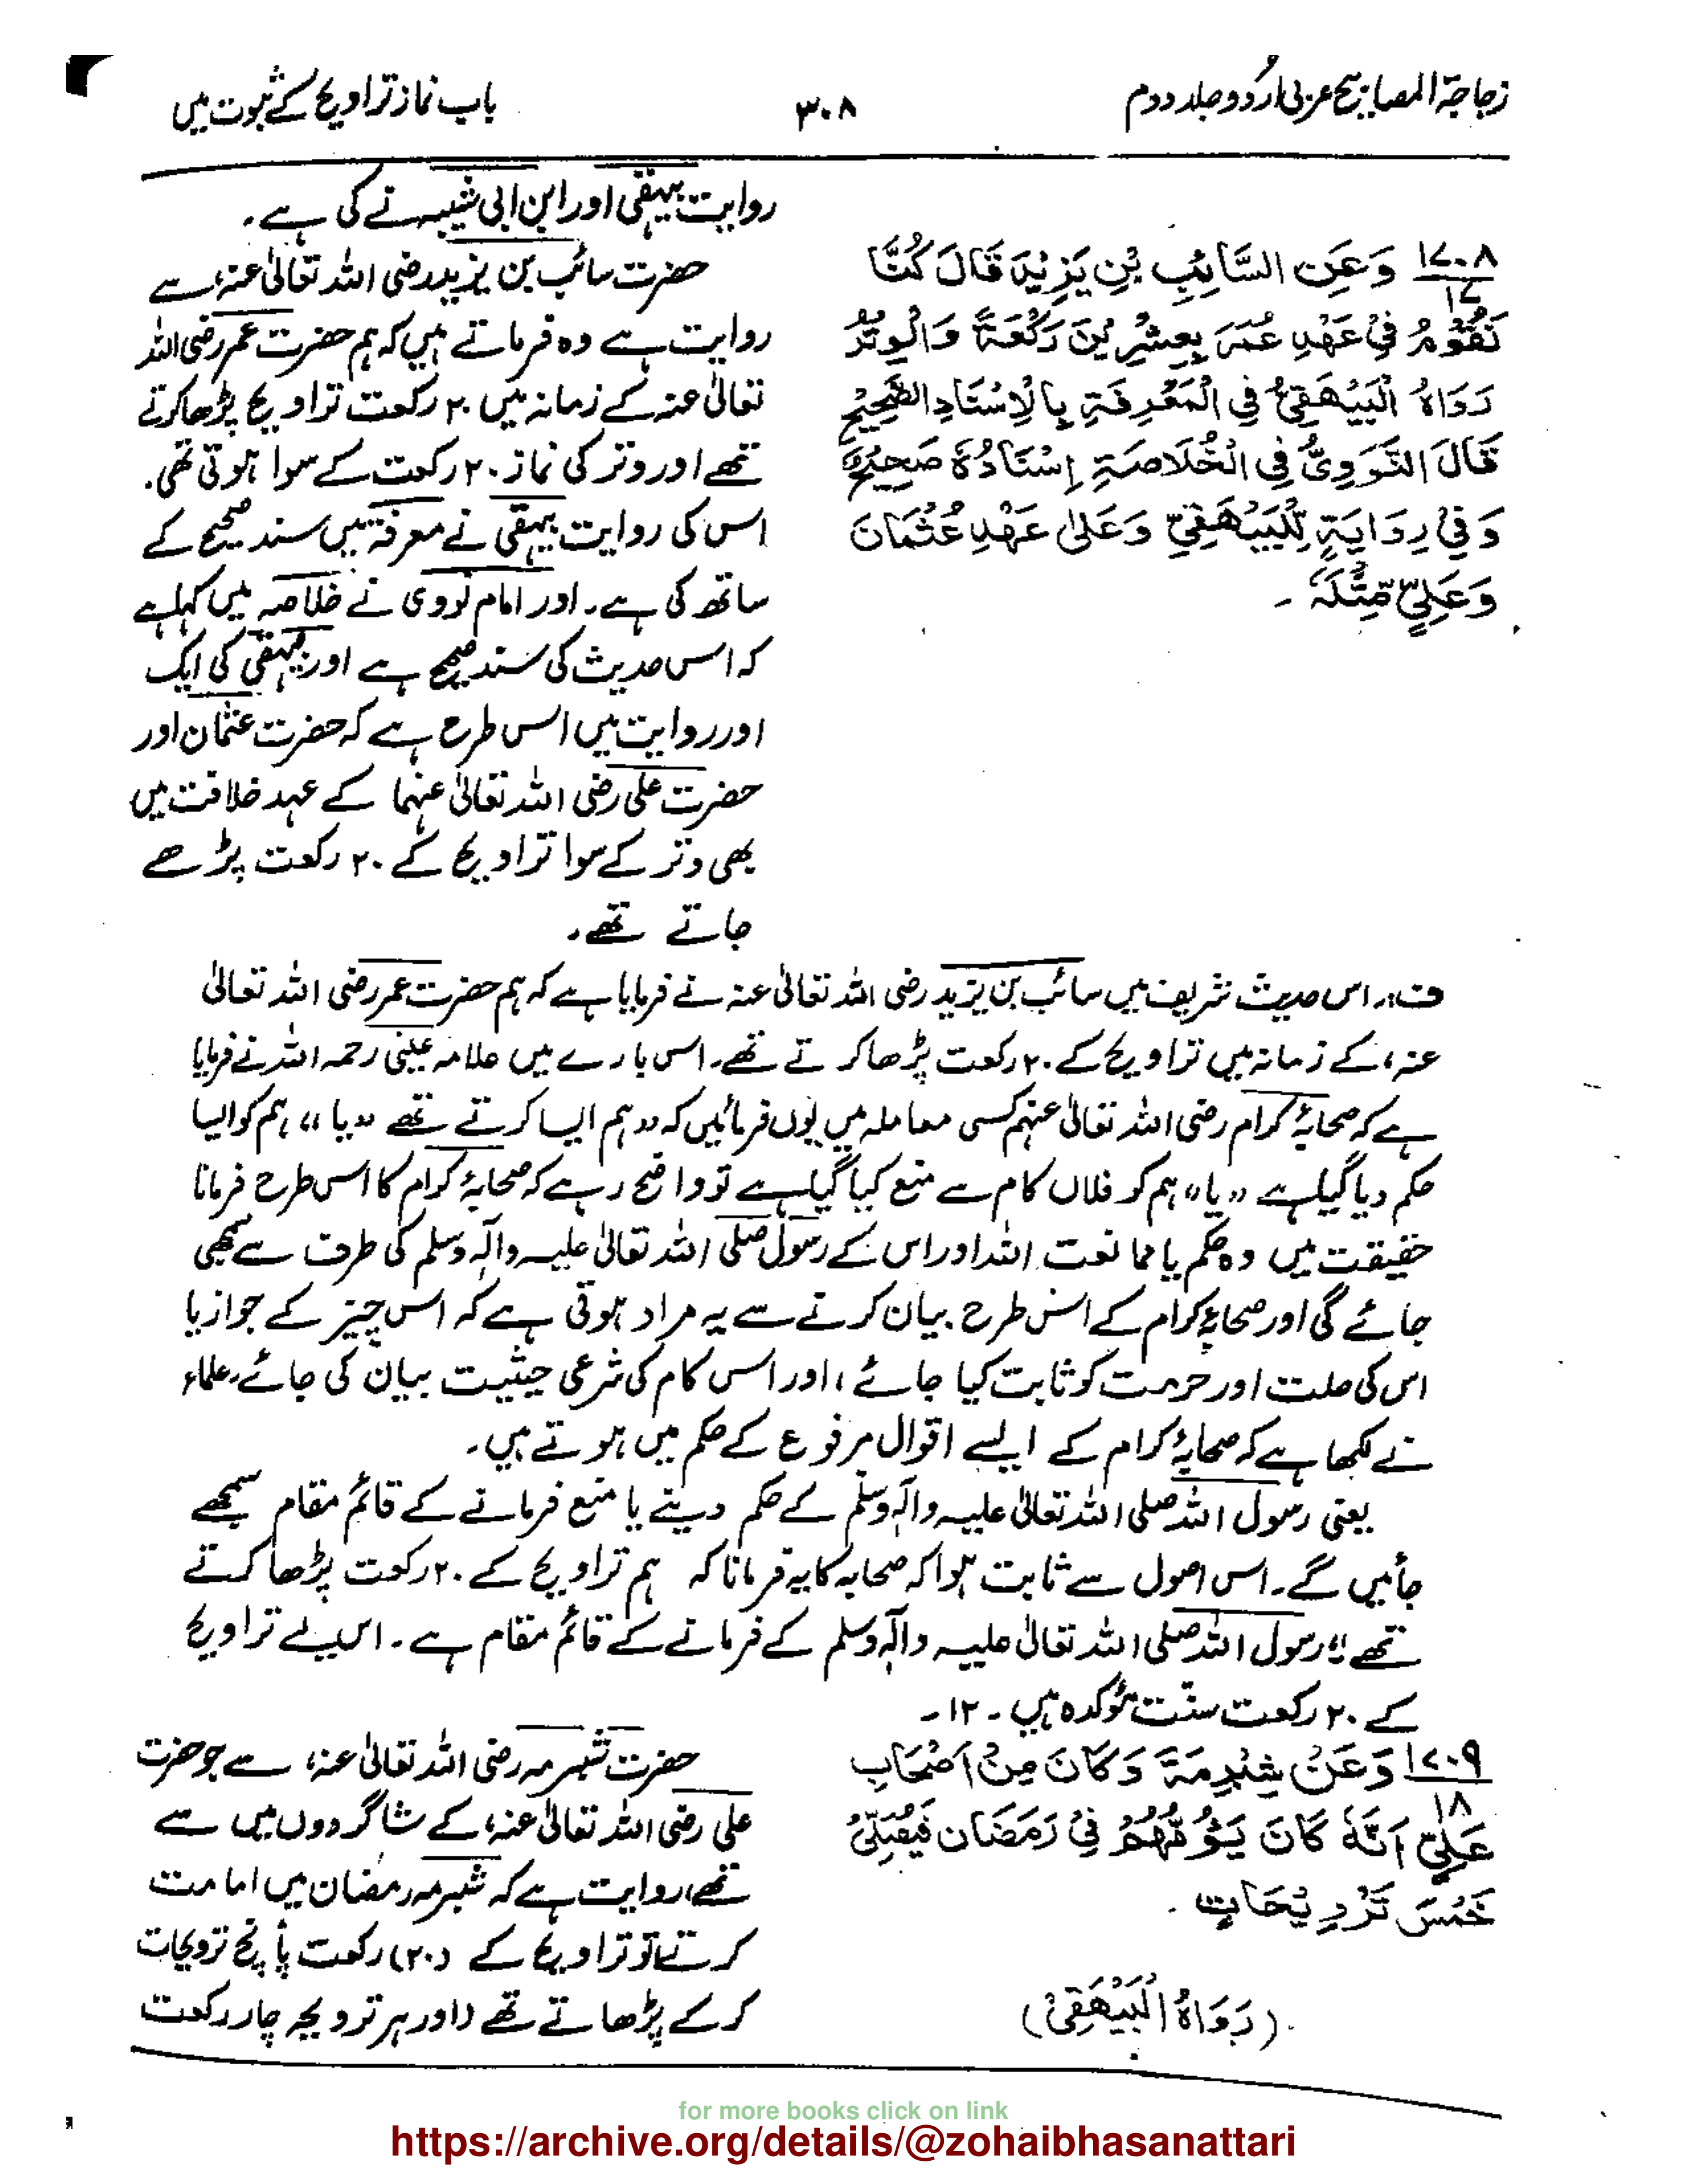 زجاجۃ المصابیح عربی اردو جلد دوم
۳۰۸
باب نماز تراویح کے ثبوت میں
روایت بیہقی اور ابن ابی شیبہ نے کی ہے۔
۱۷۰۸
۱۷
وَعَنِ السَّائِبِ بْنِ يَزِيْدَ قَالَ كُنَّا
نَقُوْمُ فِيْ عَهْدِ عُمَرَ بِعِشْرِيْنَ رَكْعَةً وَالْوِتْرُ
رَوَاهُ الْبَيْهَقِيُّ فِي الْمَعْرِفَةِ بِالْاِسْنَادِ الصَّحِيْحِ
قَالَ النَّوَوِيُّ فِي الْخُلَاصَةِ اِسْنَادُهُ صَحِيْحٌ
وَفِيْ رِوَايَةٍ لِلْبَيْهَقِيِّ وَعَلٰى عَهْدِ عُثْمَانَ
وَعَلِيٍّ مِّثْلَهُ ۔
حضرت سائب بن یزید رضی اللہ تعالیٰ عنہ، سے
روایت ہے وہ فرماتے ہیں کہ ہم حضرت عمر رضی اللہ
تعالیٰ عنہ کے زمانہ میں ۲۰ رکعت تراویح پڑھا کرتے
تھے اور وتر کی نماز ۲۰ رکعت کے سوا ہوتی تھی۔
اس کی روایت بیہقی نے معرفۃ میں سند صحیح کے
ساتھ کی ہے۔ اور امام نووی نے خلاصہ میں کہا ہے
کہ اس حدیث کی سند صحیح ہے اور بیہقی کی ایک
اور روایت میں اس طرح ہے کہ حضرت عثمان اور
حضرت علی رضی اللہ تعالیٰ عنہما کے عہد خلافت میں
بھی وتر کے سوا تراویح کے ۲۰ رکعت پڑھے
جاتے تھے۔
ف: اس حدیث شریف میں سائب بن یزید رضی اللہ تعالیٰ عنہ نے فرمایا ہے کہ ہم حضرت عمر رضی اللہ تعالیٰ
عنہ، کے زمانہ میں تراویح کے ۲۰ رکعت پڑھا کرتے تھے۔ اس بارے میں علامہ عینی رحمہ اللہ نے فرمایا
ہے کہ صحابۂ کرام رضی اللہ تعالیٰ عنہم کسی معاملہ میں یوں فرمائیں کہ ”ہم ایسا کرتے تھے“ یا ”ہم کو ایسا
حکم دیا گیا ہے“ یا ”ہم کو فلاں کام سے منع کیا گیا ہے تو واضح رہے کہ صحابۂ کرام کا اس طرح فرمانا
حقیقت میں وہ حکم یا ممانعت اللہ اور اس کے رسول صلی اللہ تعالیٰ علیہ وآلہ وسلم کی طرف سے سمجھی
جائے گی اور صحابۂ کرام کے اس طرح بیان کرنے سے یہ مراد ہوتی ہے کہ اس چیز کے جواز یا
اس کی حلت اور حرمت کو ثابت کیا جائے، اور اس کام کی شرعی حیثیت بیان کی جائے، علماء
نے لکھا ہے کہ صحابۂ کرام کے ایسے اقوال مرفوع کے حکم میں ہوتے ہیں۔
یعنی رسول اللہ صلی اللہ تعالیٰ علیہ وآلہ وسلم کے حکم دینے یا منع فرمانے کے قائم مقام سمجھے
جائیں گے۔ اس اصول سے ثابت ہوا کہ صحابہ کا یہ فرمانا کہ ہم تراویح کے ۲۰ رکعت پڑھا کرتے
تھے“ رسول اللہ صلی اللہ تعالیٰ علیہ وآلہ وسلم کے فرمانے کے قائم مقام ہے۔ اس لیے تراویح
کے ۲۰ رکعت سنت مؤکدہ ہیں ۔ ۱۲ ۔
۱۷۰۹
۱۸
وَعَنْ شِبْرِمَةَ وَكَانَ مِنْ اَصْحَابِ
عَلِيٍّ اَنَّهٗ كَانَ يَؤُمُّهُمْ فِيْ رَمَضَانَ فَيُصَلِّيْ
خَمْسَ تَرْوِيْحَاتٍ ۔
(رَوَاهُ الْبَيْهَقِيُّ)
حضرت شبرمہ رضی اللہ تعالیٰ عنہ، سے جو حضرت
علی رضی اللہ تعالیٰ عنہ، کے شاگردوں میں سے
تھے، روایت ہے کہ شبرمہ رمضان میں امامت
کرتے تو تراویح کے (۲۰) رکعت پانچ ترویحات
کرکے پڑھاتے تھے (اور ہر ترویحہ چار رکعت
for more books click on link
https://archive.org/details/@zohaibhasanattari